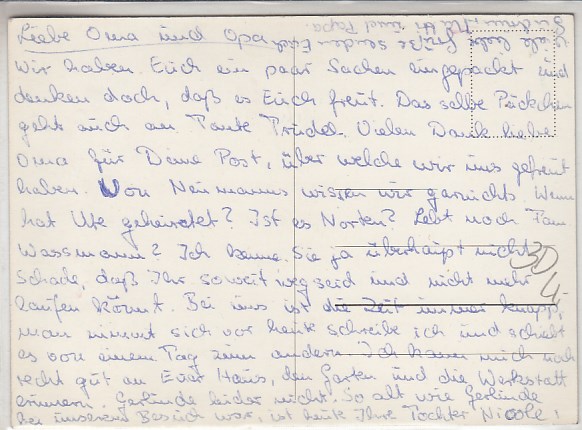 Liebe Oma und Opa
Viele liebe Grüße senden Euch
Mutti und Papa.
Wir haben Euch ein paar Sachen eingepackt und
denken doch, daß es Euch freut. Das selbe Päckchen
geht auch an Tante Trudel. Vielen Dank liebe
Oma für Deine Post, über welche wir uns gefreut
haben. Von Neumanns wissen wir garnichts. Wann
hat Ute geheiratet? Ist es Norten? Lebt noch Fam
Wassmann? Ich kenne Sie ja überhaupt nicht.
Schade, daß Ihr so weit weg seid und nicht mehr
laufen könnt. Bei uns ist die Zeit immer knapp,
man nimmt sich vor heute schreibe ich und schiebt
es von einem Tag zum andern. Ich kann mich noch
recht gut an Euer Haus, den Garten und die Werkstatt
erinnern. Gerlinde leider nicht. So alt wie Gerlinde
bei unserem Besuch war, ist heute Ihre Tochter Nicole!
3D
4,-